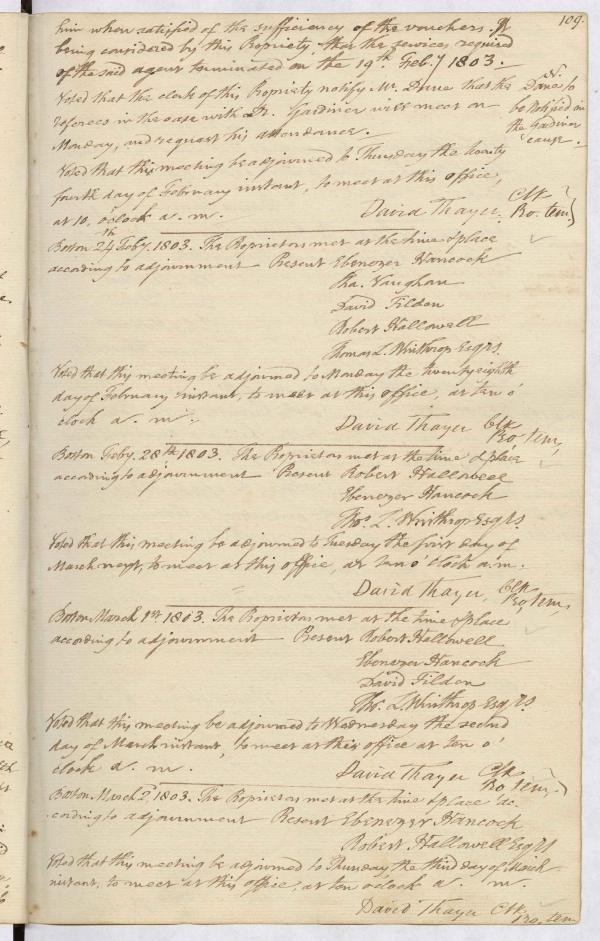 109.
him when satisfied of the sufficiency of the vouchers. It
being considered by this Propriety, that the services required
of the said agent terminated on the 19th Feby 1803.
Voted that the clerk of this Propriety notify Mr. Dane that the
referees in the case with Dr. Gardiner will meet on
Monday, and request his attendance.
N. Dane to
be notified in
the Gardiner
cause.
Voted that this meeting be adjourned to Thursday the twenty
fourth day of February instant, to meet at this office,
at 10, o'clock a. m.
David Thayer. Clk Pro. tem,
Boston 24th Feby. 1803. The Proprietors met at the time & place
according to adjournment Present Ebenezer Hancock
Cha. Vaughan
David Tilden
Robert Hallowell
Thomas L. Winthrop Esqrs.
Voted that this meeting be adjourned to Monday the twenty eighth
day of February instant, to meet at this office, at ten o'
clock a. m.
David Thayer Clk Pro. tem,
Boston Feby. 28th 1803. The Proprietors met at the time & place
according to adjournment Present Robert Hallowell
Ebenezer Hancock
Tho. L. Winthrop Esqrs
Voted that this meeting be adjourned to Tuesday the first day of
March next, to meet at this office, at ten o'clock a.m.
David Thayer, Clk Pro, tem,
Boston March 1st 1803. The Proprietors met at the time & place
according to adjournment Present Robert Hallowell
Ebenezer Hancock
David Tilden
Tho. L. Winthrop Esqrs
Voted that this meeting be adjourned to Wednesday the second
day of March instant, to meet at this office at ten o'
clock a. m.
David Thayer Clk Pro, tem,
Boston March 2, 1803. The Proprietors met at the time & place ac-
-cording to adjournment Present Ebenezer Hancock
Robert Hallowell Esqrs
Voted that this meeting be adjourned to Thursday the third day of March
instant, to meet at this office, at ten o'clock a. m.
David Thayer Clk. Pro. tem